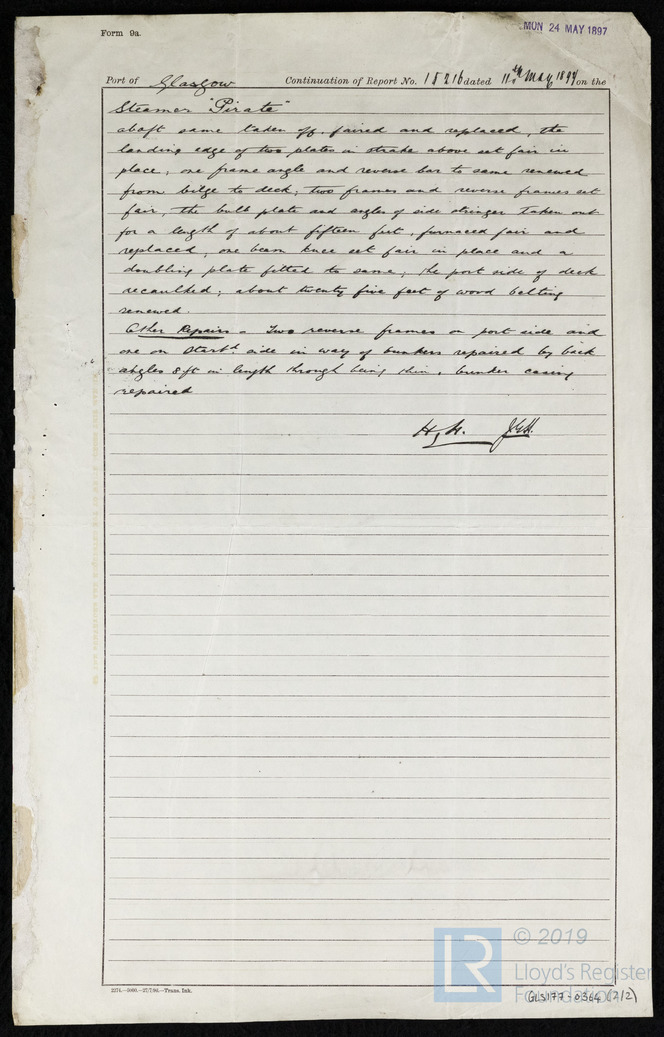 Form 9a.
MON 24 MAY 1897
Port of Glasgow Continuation of Report No. 18216 dated 11th May 1897 on the
Steamer "Pirate"
abaft same taken off, faired and replaced, the
landing edge of two plates in strake above set fair in
place, one frame angle and reverse bar to same renewed
from bilge to deck; two frames and reverse frames set
fair, the bulb plate and angles of side stringer taken out
for a length of about fifteen feet, furnaced fair and
replaced, one beam knee set fair in place and a
doubling plate fitted to same; the port side of deck
recaulked; about twenty five feet of wood belting
renewed.
Other Repairs - Two reverse frames on port side and
one on Starbd side in way of bunkers repaired by back
angles 8 ft in length through being thin, bunker casing
repaired
2274.-5000.-27/7/96.-Trans. Ink.
© 2019
LR
Lloyd's Register
Foundation
GLS177-0364 (2/2)